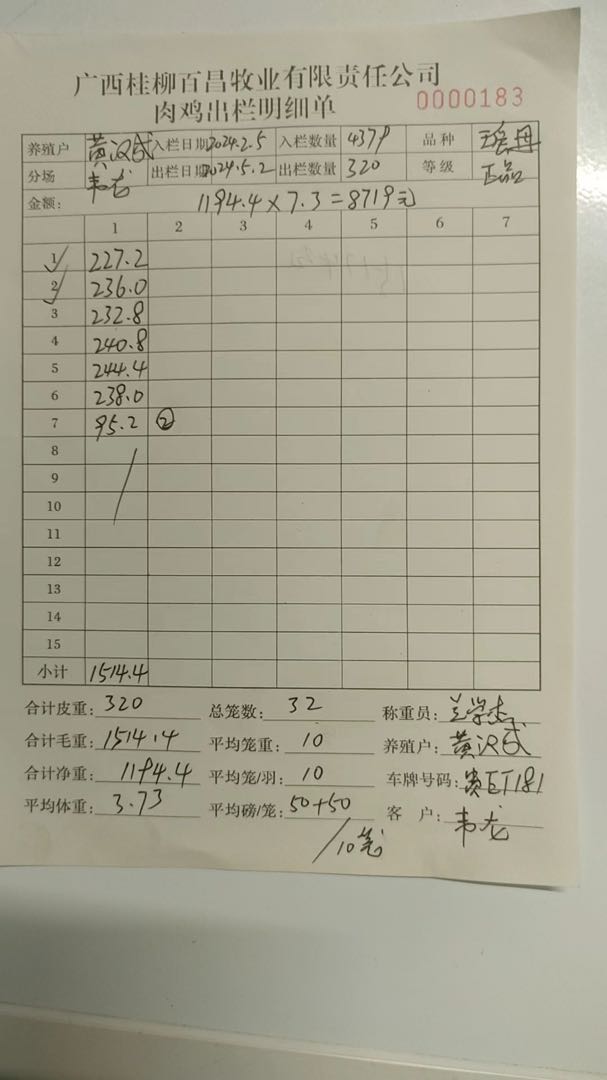 广西桂柳百昌牧业有限责任公司
肉鸡出栏明细单 0000183
养殖户 黄汉成 入栏日期 2024.2.5 入栏数量 4379 品种 瑶丹
分场 韦龙 出栏日期 2024.5.2 出栏数量 320 等级 正品
金额: 1194.4×7.3=8719元
1 2 3 4 5 6 7
1 227.2
2 236.0
3 232.8
4 240.8
5 244.4
6 238.0
7 95.2 ②
8
9
10
11
12
13
14
15
小计 1514.4
合计皮重: 320 总笼数: 32 称重员: 兰学杰
合计毛重: 1514.4 平均笼重: 10 养殖户: 黄汉成
合计净重: 1194.4 平均笼/羽: 10 车牌号码: 贵ET181
平均体重: 3.73 平均磅/笼: 50+50 客户: 韦龙
/10笼